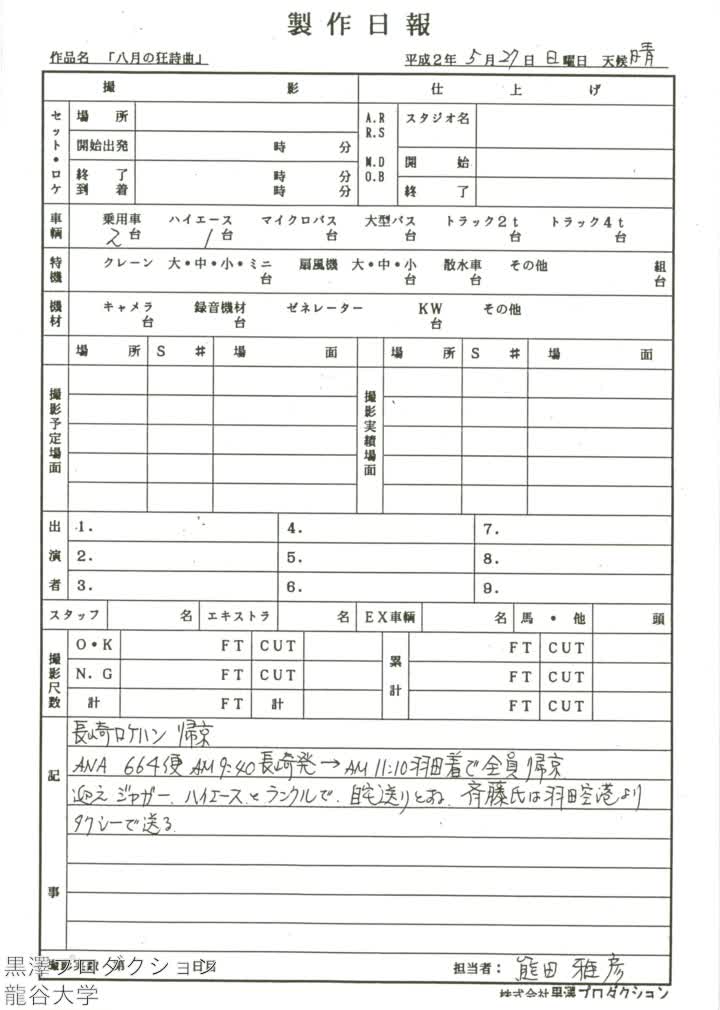 製作日報
作品名 「八月の狂詩曲」 平成2年 5月27日 日曜日 天候 晴
撮影 仕上げ
セット・ロケ 場所 A.R R.S スタジオ名
開始出発 時 分 M.D O.B 開始
終了 時 分 終了
到着 時 分
車輌 乗用車 ハイエース マイクロバス 大型バス トラック2t トラック4t
2台 1台 台 台 台 台
特機 クレーン 大・中・小・ミニ 扇風機 大・中・小 散水車 その他 組
台 台 台 台
機材 キャメラ 録音機材 ゼネレーター KW その他
台 台 台
場所 S# 場面 場所 S# 場面
撮影予定場面 撮影実績場面
出演者 1. 4. 7.
2. 5. 8.
3. 6. 9.
スタッフ 名 エキストラ 名 EX車輌 名 馬・他 頭
撮影尺数 O・K FT CUT 累計 FT CUT
N.G FT CUT FT CUT
計 FT 計 FT CUT
記事
長崎ロケハン 帰京
ANA 664便 AM9:40長崎発→AM11:10羽田着で全員帰京
迎えジャガー、ハイエースとランクルで、自宅送りとする、斉藤氏は羽田空港より
タクシーで送る
撮影実数 第 日目 担当者: 熊田 雅彦
株式会社黒澤プロダクション
黒澤プロダクション
龍谷大学